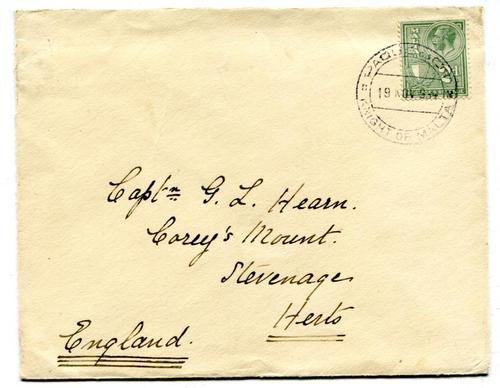 PAQUEBOT
19 NOV 934
KNIGHT OF MALTA
Captn G. L. Hearn.
Corey's Mount.
Stevenage
Herts
England.